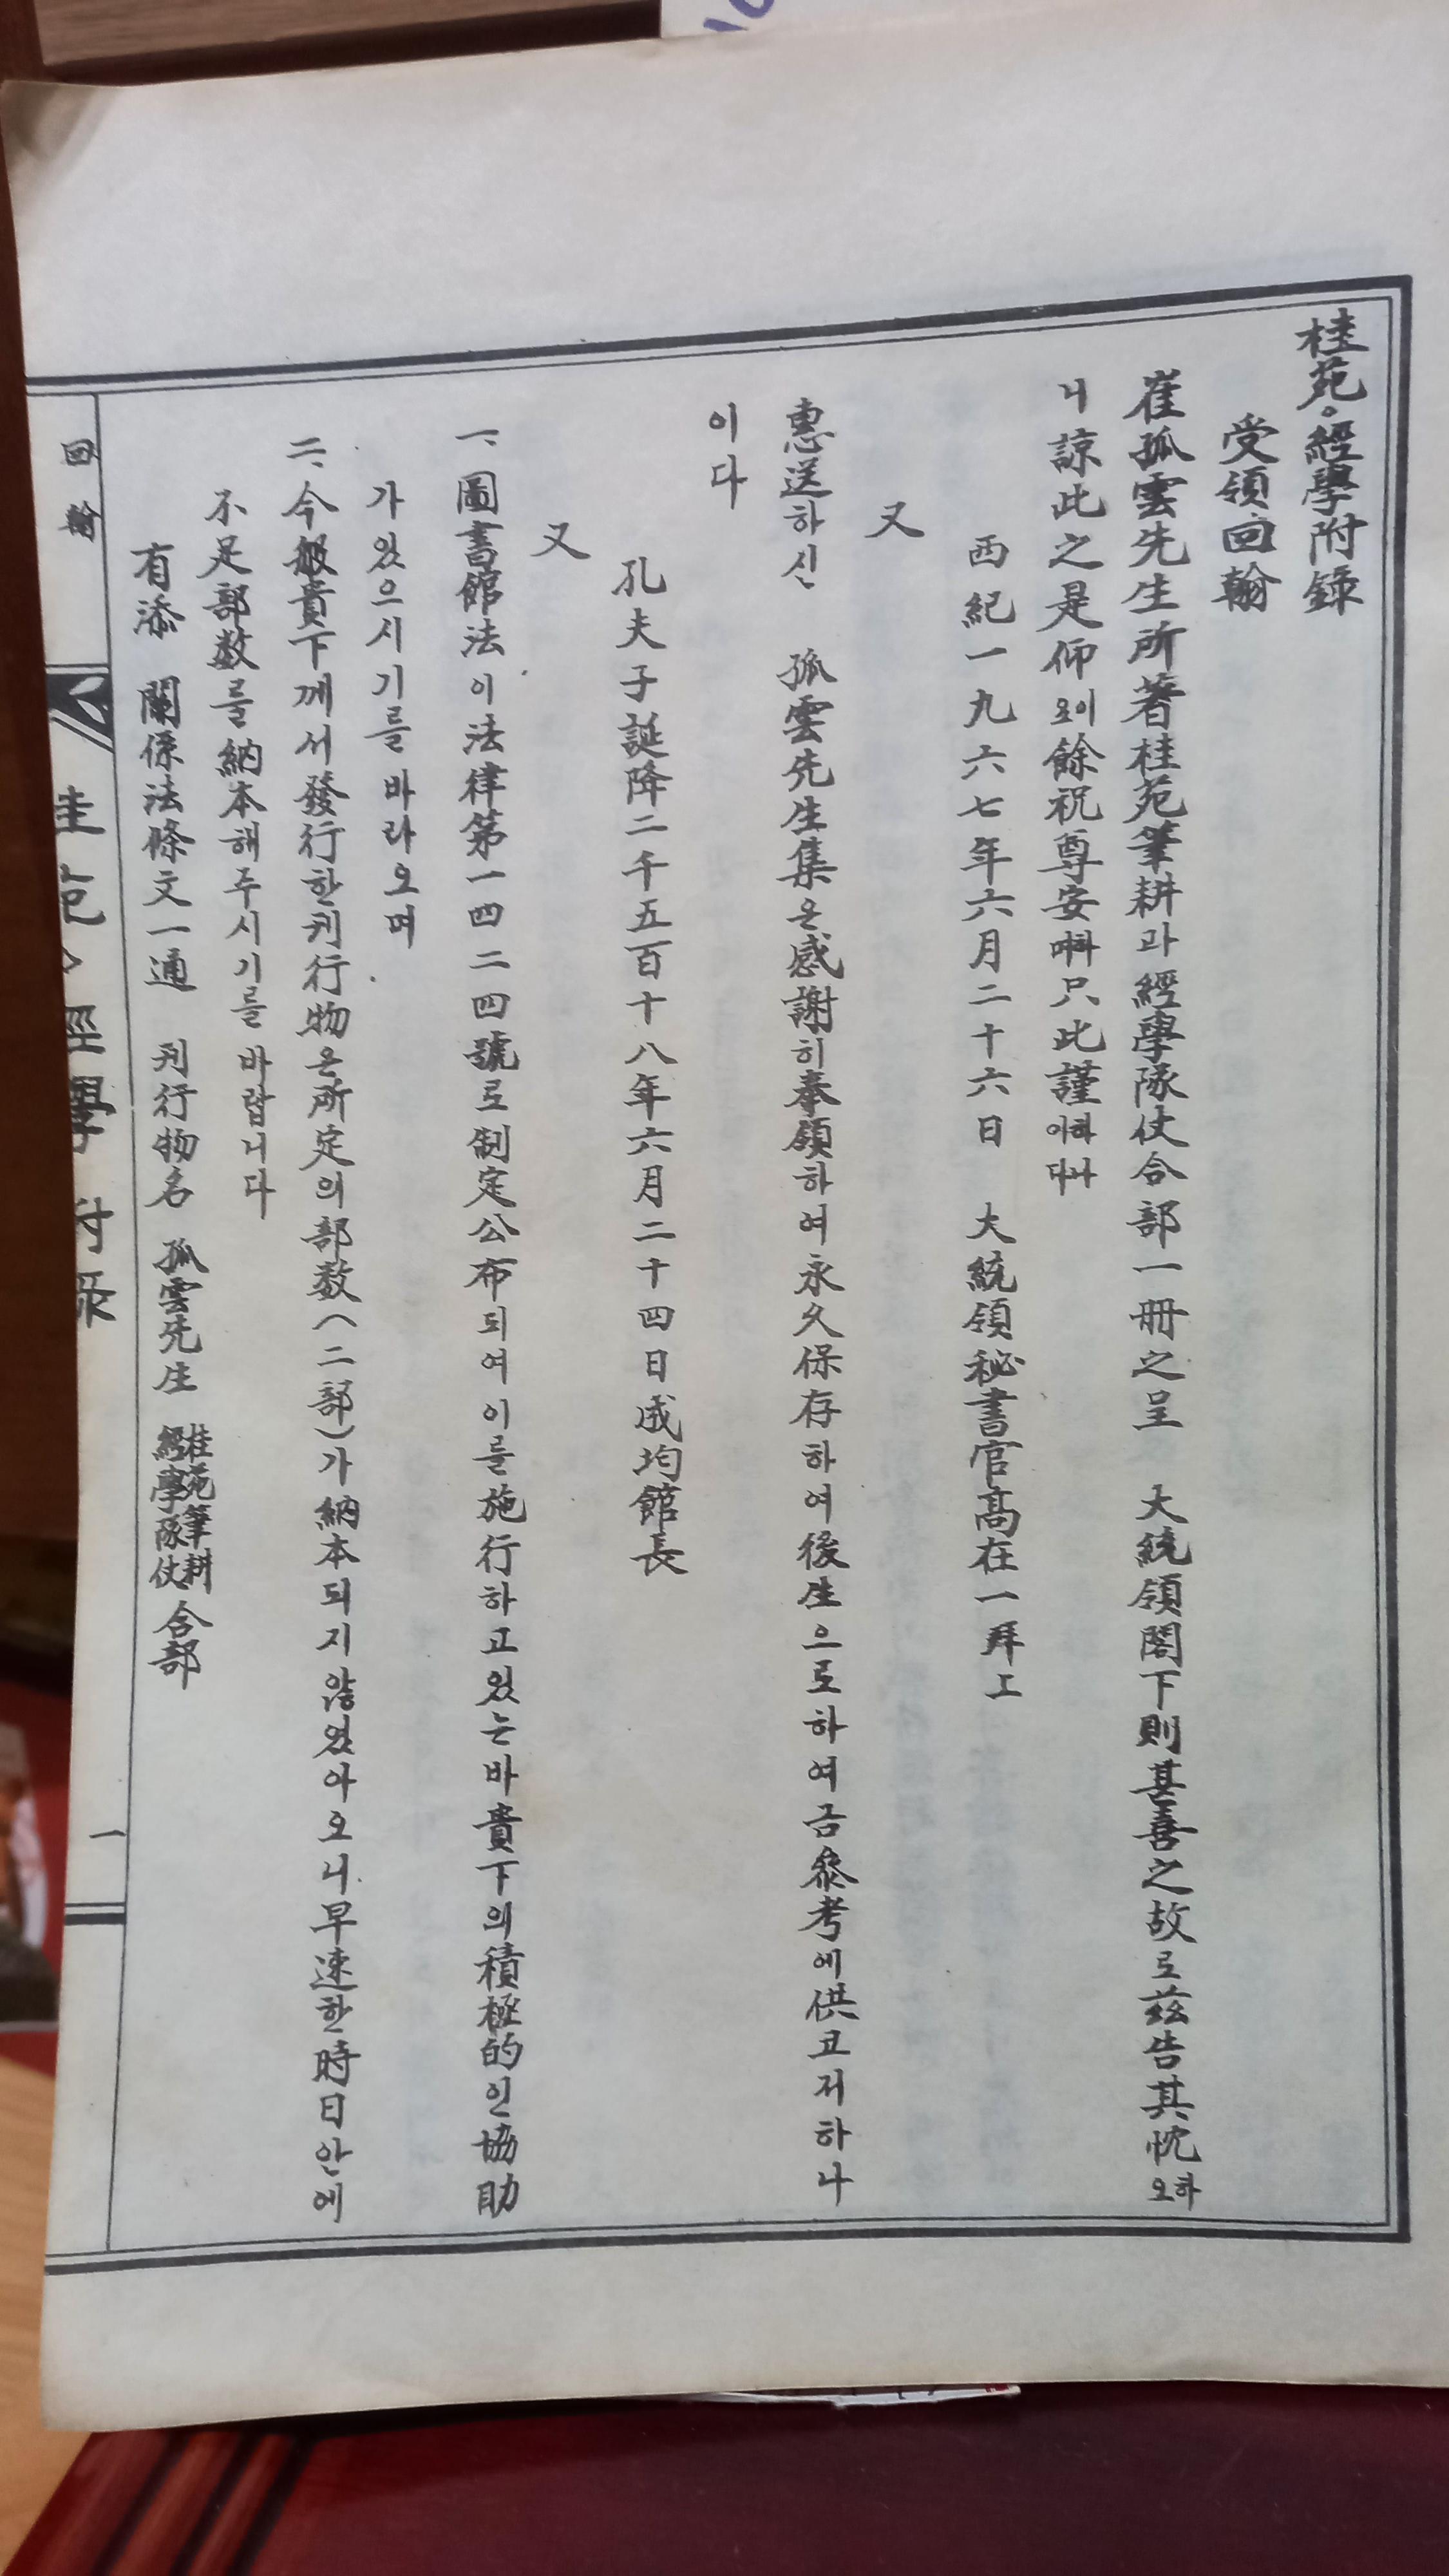 桂苑。經學附錄
受領回翰
崔孤雲先生所著桂苑筆耕과經學隊仗合部一冊之呈 大統領閣下則甚善之故로玆告其忱하오
니諒此之是仰이오餘祝尊安 只此謹하나이다
西紀一九六七年六月二十六日 大統領秘書官高在一拜上
又
惠送하신 孤雲先生集은感謝히奉領하여永久保存하여後生으로하여금參考에供코저하나
이다
孔夫子誕降二千五百十八年六月二十四日成均館長
又
一、圖書館法이法律第一四二四號로制定公布되여이를施行하고있는바貴下의積極的인協助
가있으시기를바라오며
二、今般貴下께서發行한刊行物은所定의部数(二部)가納本되지않었아오니早速한時日안에
不足部数를納本해주시기를바랍니다
有添 關係法條文一通 刊行物名 孤雲先生 桂苑筆耕 經學隊仗 合部
回翰
經學附錄
一